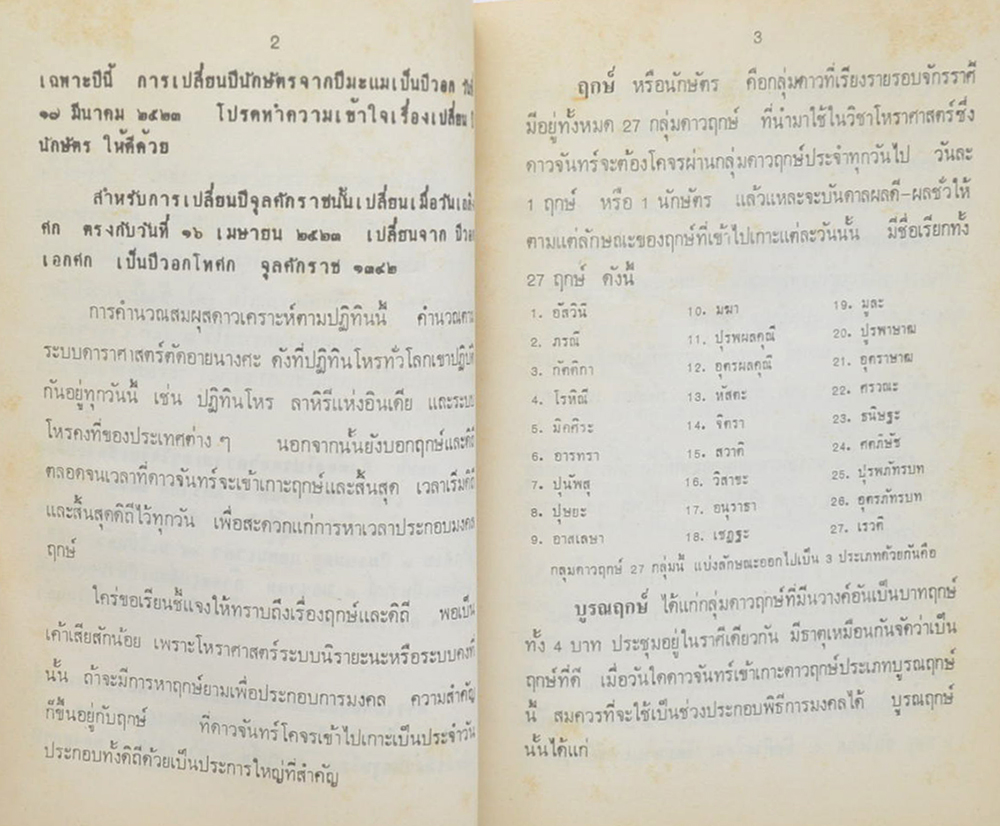 2
เฉพาะปีนี้ การเปลี่ยนปีนักษัตรจากปีมะแมเป็นปีวอก
๑๗ มีนาคม ๒๕๒๓ โปรดทำความเข้าใจเรื่องเปลี่ยน
นักษัตร ให้ดีด้วย
สำหรับการเปลี่ยนปีจุลศักราชนั้นเปลี่ยนเมื่อวัน
ศก ตรงกับวันที่ ๑๖ เมษายน ๒๕๒๓ เปลี่ยนจาก ปีวอก
เอกศก เป็นปีวอกโทศก จุลศักราช ๑๓๔๒
การคำนวณสมผุสดาวเคราะห์ตามปฏิทินนี้ คำนวณตาม
ระบบดาราศาสตร์ตัดอายนางศะ ดังที่ปฏิทินโหรทั่วโลกเขาปฏิบัติ
กันอยู่ทุกวันนี้ เช่น ปฏิทินโหร ลาหิรีแห่งอินเดีย และระบบ
โหรคงที่ของประเทศต่าง ๆ นอกจากนั้นยังบอกฤกษ์และดิถี
ตลอดจนเวลาที่ดาวจันทร์จะเข้าเกาะฤกษ์และสิ้นสุด เวลาเริ่มดิถี
และสิ้นสุดดิถีไว้ทุกวัน เพื่อสะดวกแก่การหาเวลาประกอบมงคล
ฤกษ์
ใคร่ขอเรียนชี้แจงให้ทราบถึงเรื่องฤกษ์และดิถี พอเป็น
เค้าเสียสักน้อย เพราะโหราศาสตร์ระบบนิรายะนะหรือระบบคงที่
นั้น ถ้าจะมีการหาฤกษ์ยามเพื่อประกอบการมงคล ความสำคัญ
ก็ขึ้นอยู่กับฤกษ์ ที่ดาวจันทร์โคจรเข้าไปเกาะเป็นประจำวัน
ประกอบทั้งดิถีด้วยเป็นประการใหญ่ที่สำคัญ
3
ฤกษ์ หรือนักษัตร คือกลุ่มดาวที่เรียงรายรอบจักรราศี
มีอยู่ทั้งหมด 27 กลุ่มดาวฤกษ์ ที่นำมาใช้ในวิชาโหราศาสตร์ซึ่ง
ดาวจันทร์จะต้องโคจรผ่านกลุ่มดาวฤกษ์ประจำทุกวันไป วันละ
1 ฤกษ์ หรือ 1 นักษัตร แล้วแหละจะบันดาลผลดี-ผลชั่วให้
ตามแต่ลักษณะของฤกษ์ที่เข้าไปเกาะแต่ละวันนั้น มีชื่อเรียกทั้ง
27 ฤกษ์ ดังนี้
1. อัสวินี
2. ภรณี
3. กัตติกา
4. โรหิณี
5. มิคศิระ
6. อารทรา
7. ปุนัพสุ
8. ปุษยะ
9. อาสเลษา
10. มฆา
11. ปุรพผลคุณี
12. อุตรผลคุณี
13. หัสตะ
14. จิตรา
15. สวาติ
16. วิสาขะ
17. อนุราธา
18. เชฏฐะ
19. มูละ
20. ปุรพาษาฒ
21. อุตราษาฒ
22. ศรวณะ
23. ธนิษฐะ
24. ศตภิษัช
25. ปุรพภัทรบท
26. อุตรภัทรบท
27. เรวติ
กลุ่มดาวฤกษ์ 27 กลุ่มนี้ แบ่งลักษณะออกไปเป็น 3 ประเภทด้วยกันคือ
บูรณฤกษ์ ได้แก่กลุ่มดาวฤกษ์ที่มีนวางค์อันเป็นบาทฤกษ์
ทั้ง 4 บาท ประชุมอยู่ในราศีเดียวกัน มีธาตุเหมือนกันจัดว่าเป็น
ฤกษ์ที่ดี เมื่อวันใดดาวจันทร์เข้าเกาะดาวฤกษ์ประเภทบูรณฤกษ์
นี้ สมควรที่จะใช้เป็นช่วงประกอบพิธีการมงคลได้ บูรณฤกษ์
นั้นได้แก่